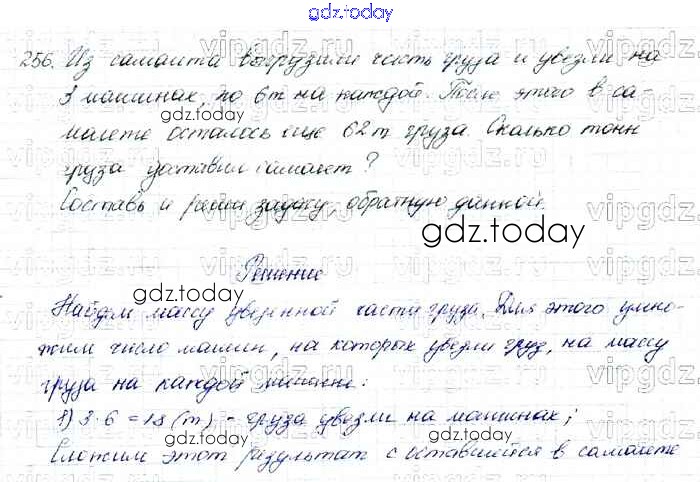 gdz.today
256. Из самолёта выгрузили часть груза и увезли на
3 машинах, по 6т на каждой. После этого в са-
gdz.today
молёте осталось ещё 62т груза. Сколько тонн
груза доставил самолет?
Составь и реши задачу, обратную данной.
gdz.today
Решение
gdz.today
Найдём массу увезенной части груза. Для этого умно-
жим число машин, на которых увезли груз, на массу
груза на каждой машине:
1) 3·6=18 (т) - груза увезли на машинах;
gdz.today
Сложим этот результат с оставшейся в самолете